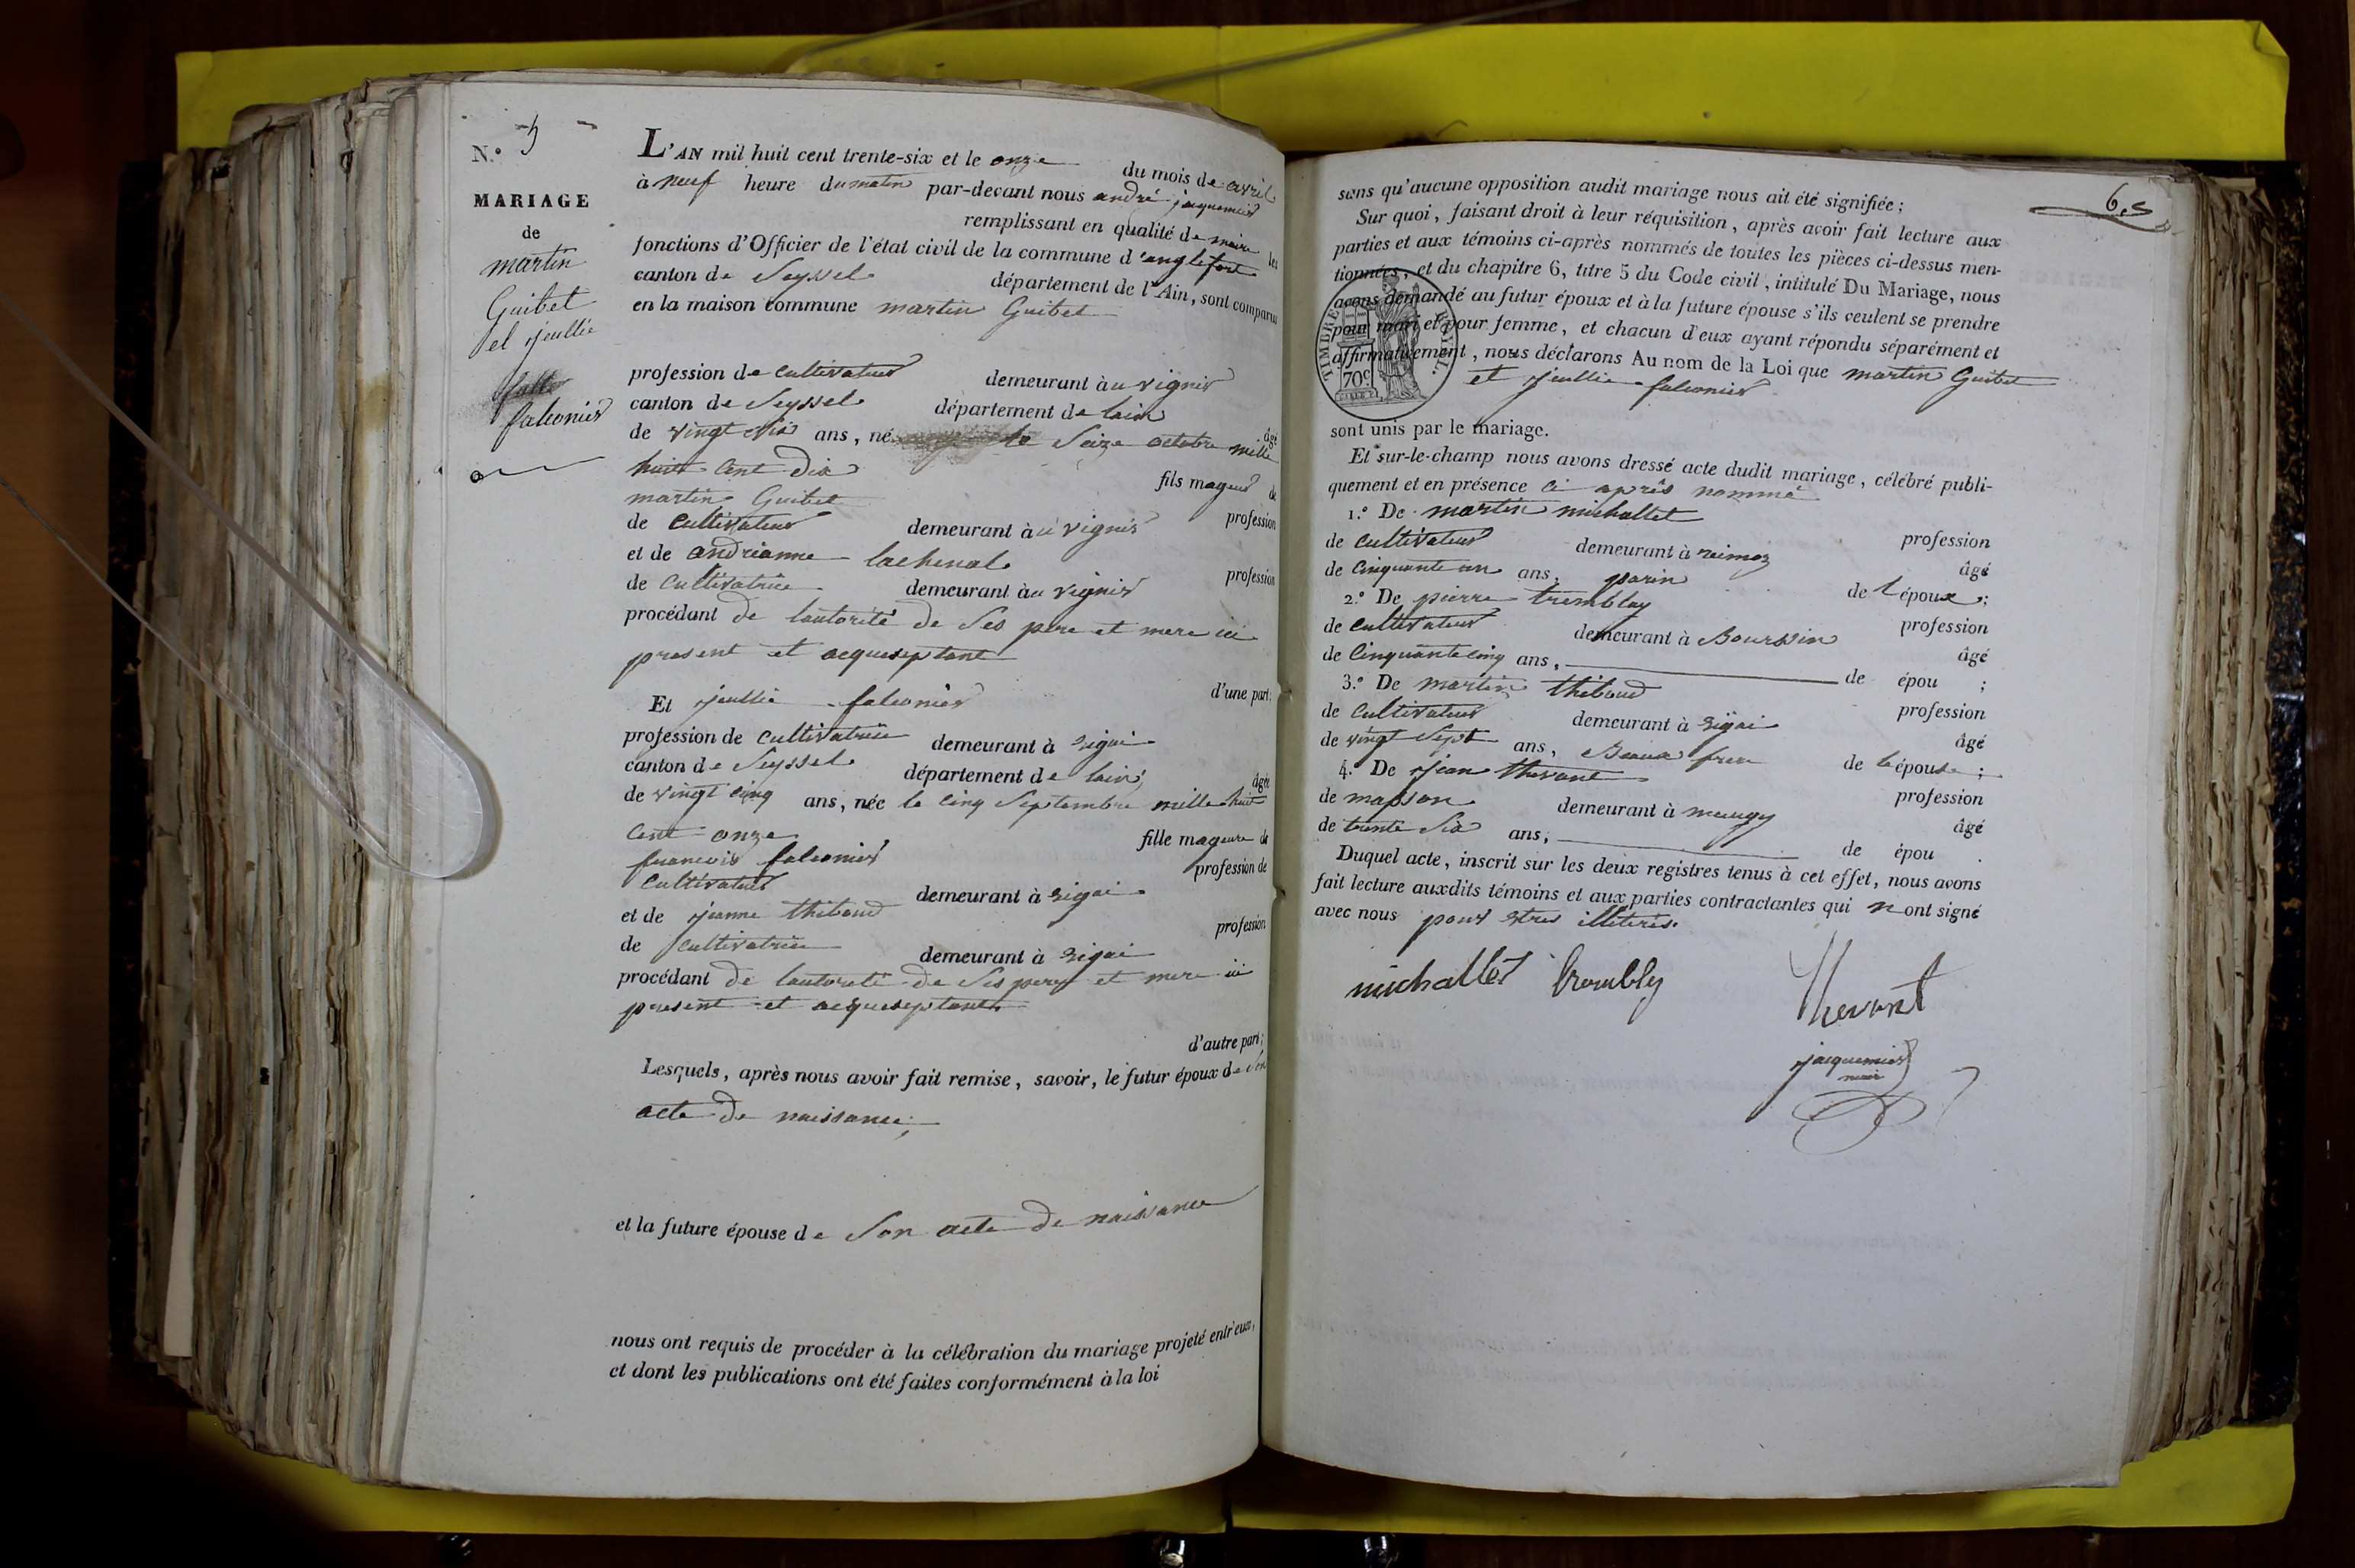 N.° 5
MARIAGE
de
martin
Guibet
et jeullie
falconier
L'AN mil huit cent trente-six et le onze du mois de avril
à neuf heure du matin par-devant nous andré jaquemier
remplissant en qualité de maire les
fonctions d'Officier de l'état civil de la commune d'anglefort
canton de Seyssel département de l'Ain, sont comparu
en la maison commune martin Guibet
profession de cultivateur demeurant au vignier
canton de Seyssel département de lain
âgé
de vingt six ans, né le Seize octobre mille
huit cent dix fils mageur de
martin Guibet profession
de cultivateur demeurant au vignier
et de andrianne lachenal profession
de cultivatrice demeurant au vignier
procédant de lautorité de Ses pere et mere ici
present et acqueseptant
d'une part;
Et jeullie falconier
profession de cultivatrice demeurant à
canton de Seyssel département de lain, âgée
de vingt cinq ans, née le cinq Septembre mille huit
cent onze fille mageure de
francois falconier profession de
cultivateur demeurant à
et de jeanne thiboud profession
de cultivatrice demeurant à
procédant de lautorité de Ses pere et mere ici
present et acqueseptant
d'autre part;
Lesquels, après nous avoir fait remise, savoir, le futur époux de Son
acte de naissance,
et la future épouse de Son acte de naissance
nous ont requis de procéder à la célébration du mariage projeté entr'eux,
et dont les publications ont été faites conformément à la loi
6.
sans qu'aucune opposition audit mariage nous ait été signifiée;
Sur quoi, faisant droit à leur réquisition, après avoir fait lecture aux
parties et aux témoins ci-après nommés de toutes les pièces ci-dessus men-
tionnées, et du chapitre 6, titre 5 du Code civil, intitulé Du Mariage, nous
avons demandé au futur époux et à la future épouse s'ils veulent se prendre
pour mari et pour femme, et chacun d'eux ayant répondu séparément et
affirmativement, nous déclarons Au nom de la Loi que martin Guibet
et jeullie falconier
TIMBRE ROYAL.
70c
sont unis par le mariage.
Et sur-le-champ nous avons dressé acte dudit mariage, célébré publi-
quement et en présence ci après nommé
1.° De martin michallet profession
de cultivateur demeurant à âgé
de cinquante un ans, parin de l'époux;
2.° De pierre tremblay profession
de cultivateur demeurant à Boursin âgé
de cinquante cinq ans, de épou ;
3.° De martin thiboud profession
de cultivateur demeurant à âgé
de vingt Sept ans, Beaux frere de lépouse;
4.° De jean thevant profession
de masson demeurant à âgé
de trente Six ans, de épou .
Duquel acte, inscrit sur les deux registres tenus à cet effet, nous avons
fait lecture auxdits témoins et aux parties contractantes qui n'ont signé
avec nous pour etres illiterés.
michallet trombly thevant
jacquemier
maire